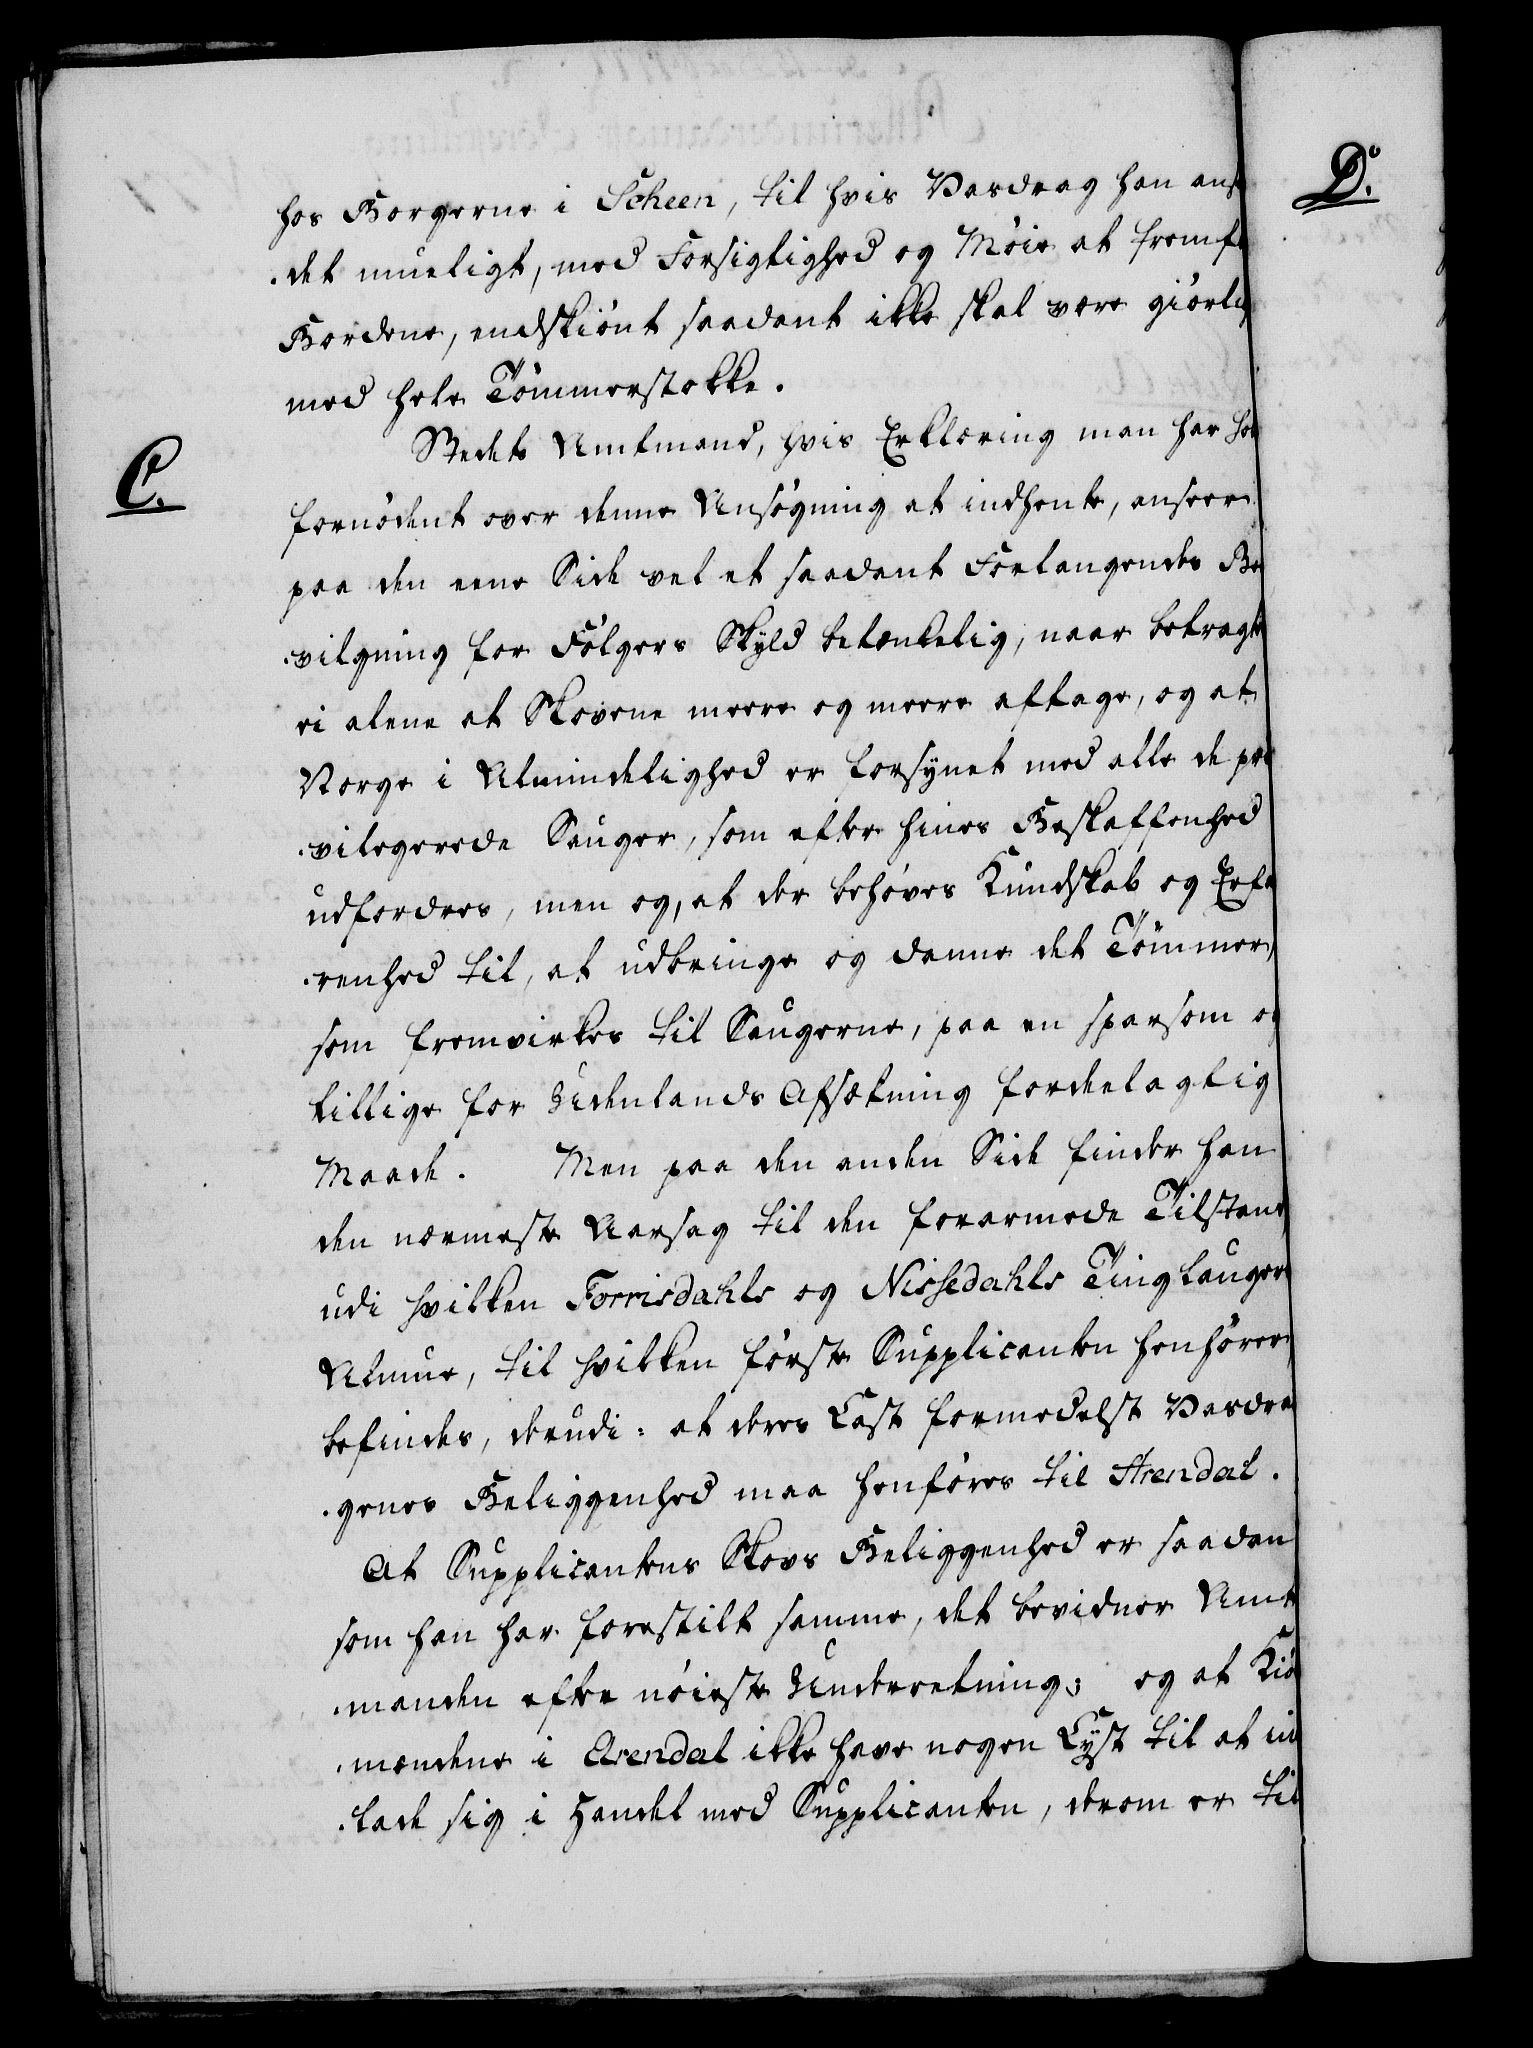 hos Borgerne i Scheen, til hvis Vasdrag han ans
det mueligt, med Forsigtighed og Møie at fremf
Bordene, endskiønt saadant ikke skal være giørli
med hele Tømmerstokke.
C.
Stedets Amtmand, hvis Erklæring man har
fornødent over denne Ansøgning at indhente, anseer
paa den eene Side vel et saadant Forlangendes Be
vilgning for Følgers Skyld betænkelig, naar betragt
ei alene at Skovene meere og meere aftage, og at
Norge i Almindelighed er forsynet med alle de pri
vilegerede Sauger, som efter hines Beskaffenhed
udfordres, men og, at der behøves Kundskab og Erfa
renhed til, at udbringe og danne det Tømmer,
som fremvirkes til Saugerne, paa en sparsom og
tillige for Udenlands Afsætning fordeelagtig
Maade. Men paa den anden Side finder han
den nærmeste Aarsag til den forarmede Tilstand
udi hvilken Forrisdahls og Nissedahls Tinglaugers
Almue, til hvilken første Supplicanten henhører,
befindes, derudi: at deres Last formedelst Vasdra
genes Beliggenhed maa henføres til Arendal.
At Supplicantens Skovs Beliggenhed er saadan
som han har forestilt samme, det bevidner Amt
manden efter nøieste Underretning; og at Kiø
mændene i Arendal ikke have nogen Lyst til at in
lade sig i Handel med Supplicanten, derom er til
D.